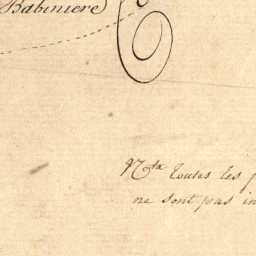 Babiniere
Nta toutes les
ne sont pas in